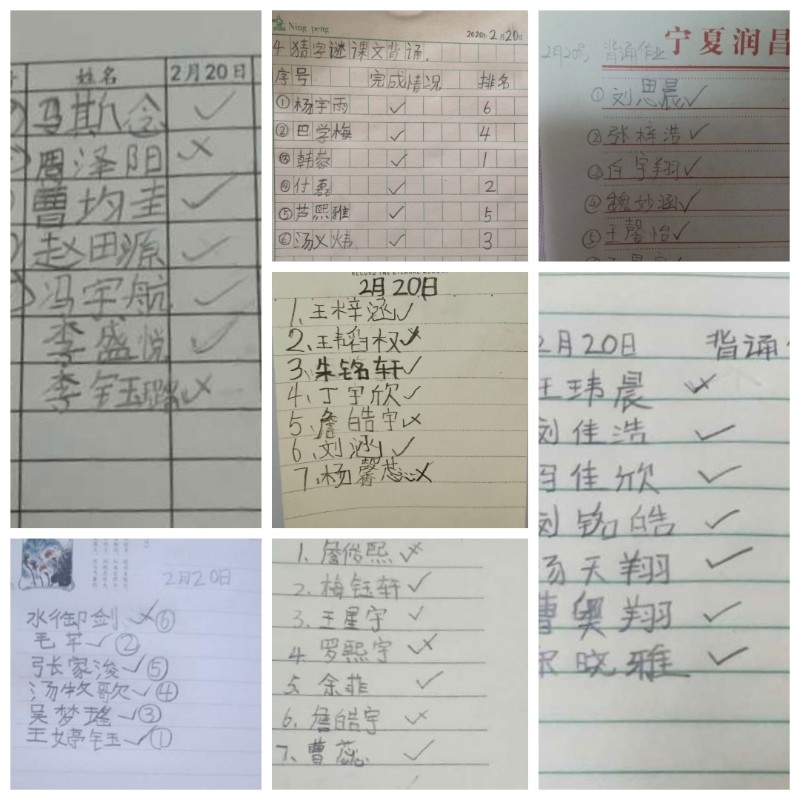 姓名 2月20日
马斯念 ✓
周泽阳 ✓×
曹均圭 ✓
赵田源 ✓
冯宇航 ✓
李盛悦 ✓
李钰璐 ✓×
Ning peng
2020年2月20日
4 猜字谜 课文背诵.
序号 完成情况 排名
①杨宇雨 ✓ 6
②巴学梅 ✓ 4
③韩蓉 ✓ 1
④付磊 ✓ 2
⑤芦熙雅 ✓ 5
⑥汤义炜 ✓ 3
宁夏润昌
2月20号, 背诵作业
①刘思晨✓
②张梓浩✓
③白宇翔✓
④魏妙涵✓
⑤王馨怡✓
2月20日
1、王梓涵✓
2、王韬权✓×
3、朱铭轩✓
4、丁宇欣✓
5、詹皓宇✓×
6、刘涵✓
7、杨馨蕊✓×
2月20日 背诵
王玮晨 ✓×
刘佳浩 ✓
佳欣 ✓
刘铭皓 ✓
汤天翔 ✓
曹奥翔 ✓
宋晓雅 ✓
2月20日
水御剑 ✓×⑥
毛芊✓②
张家浚✓⑤
汤牧歌✓④
吴梦瑶✓③
王婷钰✓①
1、詹俊熙 ✓×
2、梅钰轩✓
3、王星宇 ✓
4、罗熙宇 ✓×
5、余菲 ✓
6、詹皓宇 ✓×
7、曹蕊 ✓